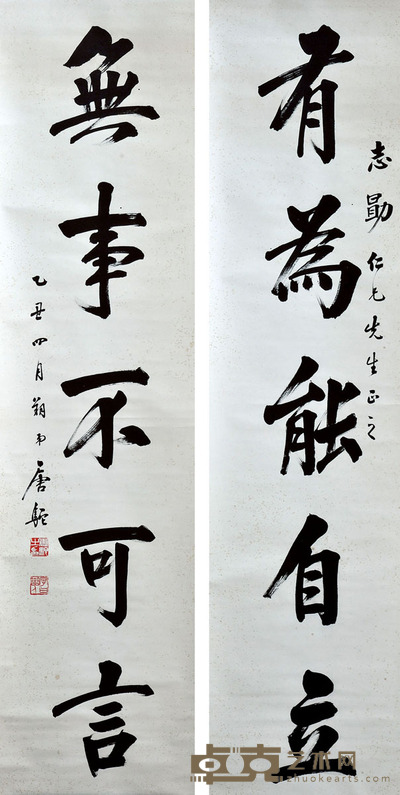 有為能自立
志勗仁兄先生正之
無事不可言
乙丑四月朔弟唐駝
卓克艺术网
zhuokearts.com